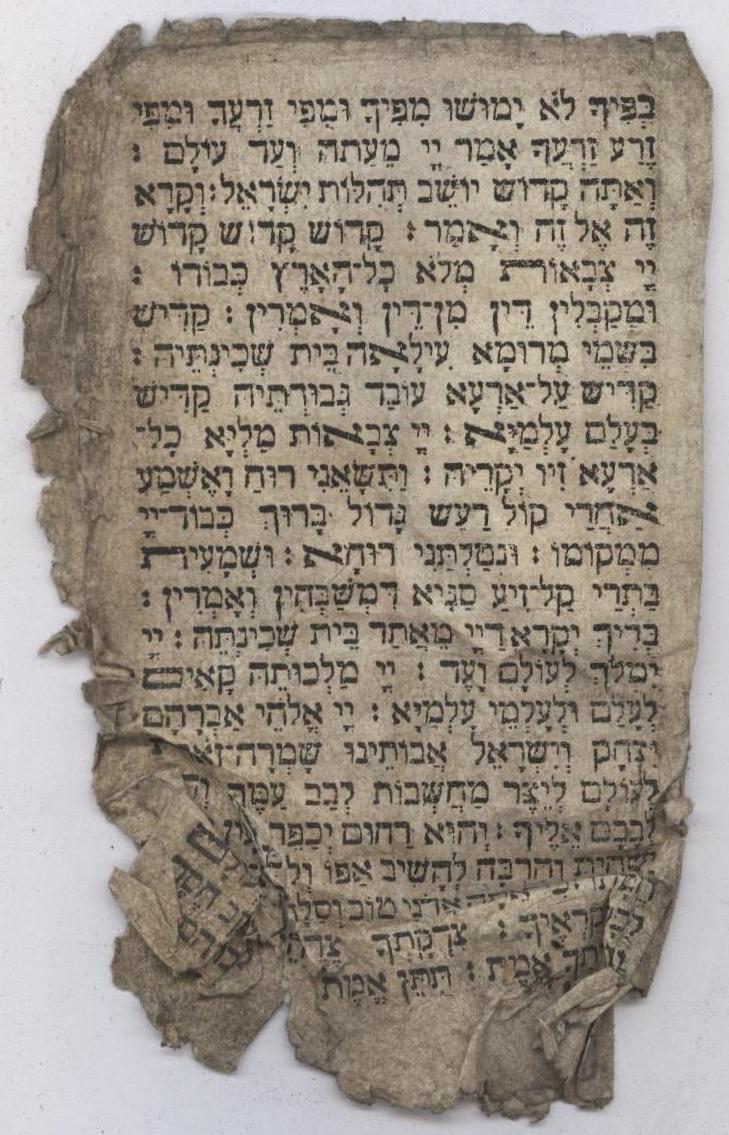 בְּפִיךָ לֹא יָמוּשׁוּ מִפִּיךָ וּמִפִּי זַרְעֲךָ וּמִפִּי
זֶרַע זַרְעֲךָ אָמַר יְיָ מֵעַתָּה וְעַד עוֹלָם :
וְאַתָּה קָדוֹשׁ יוֹשֵׁב תְּהִלּוֹת יִשְׂרָאֵל : וְקָרָא
זֶה אֶל זֶה וְאָמַר : קָדוֹשׁ קָדוֹשׁ קָדוֹשׁ
יְיָ צְבָאוֹת מְלֹא כָל־הָאָרֶץ כְּבוֹדוֹ :
וּמְקַבְּלִין דֵּין מִן־דֵּין וְאָמְרִין : קַדִּישׁ
בִּשְׁמֵי מְרוֹמָא עִילָּאָה בֵּית שְׁכִינְתֵּיהּ :
קַדִּישׁ עַל־אַרְעָא עוֹבַד גְּבוּרְתֵּיהּ קַדִּישׁ
בְּעָלַם עָלְמַיָּא : יְיָ צְבָאוֹת מַלְיָא כָל־
אַרְעָא זִיו יְקָרֵיהּ : וַתִּשָּׂאֵנִי רוּחַ וָאֶשְׁמַע
אַחֲרַי קוֹל רַעַשׁ גָּדוֹל בָּרוּךְ כְּבוֹד־יְיָ
מִמְּקוֹמוֹ : וּנְטָלַתְנִי רוּחָא : וּשְׁמָעִית
בַּתְרַי קַל־זִיעַ סַגִּיא דִּמְשַׁבְּחִין וְאָמְרִין :
בְּרִיךְ יְקָרָא דַיְיָ מֵאֲתַר בֵּית שְׁכִינְתֵּהּ : יְיָ
יִמְלֹךְ לְעוֹלָם וָעֶד : יְיָ מַלְכוּתֵהּ קָאֵים
לְעָלַם וּלְעָלְמֵי עָלְמַיָּא : יְיָ אֱלֹהֵי אַבְרָהָם
יִצְחָק וְיִשְׂרָאֵל אֲבוֹתֵינוּ שָׁמְרָה־זֹּאת
לְעוֹלָם לְיֵצֶר מַחְשְׁבוֹת לְבַב עַמֶּךָ
לְבָבָם אֵלֶיךָ : וְהוּא רַחוּם יְכַפֵּר עָוֹן
יַשְׁחִית וְהִרְבָּה לְהָשִׁיב אַפּוֹ
אֲדֹנָי טוֹב וְסַלָּח
קֹרְאֶיךָ : צִדְקָתְךָ צֶדֶק
אֱמֶת : תִּתֵּן אֱמֶת